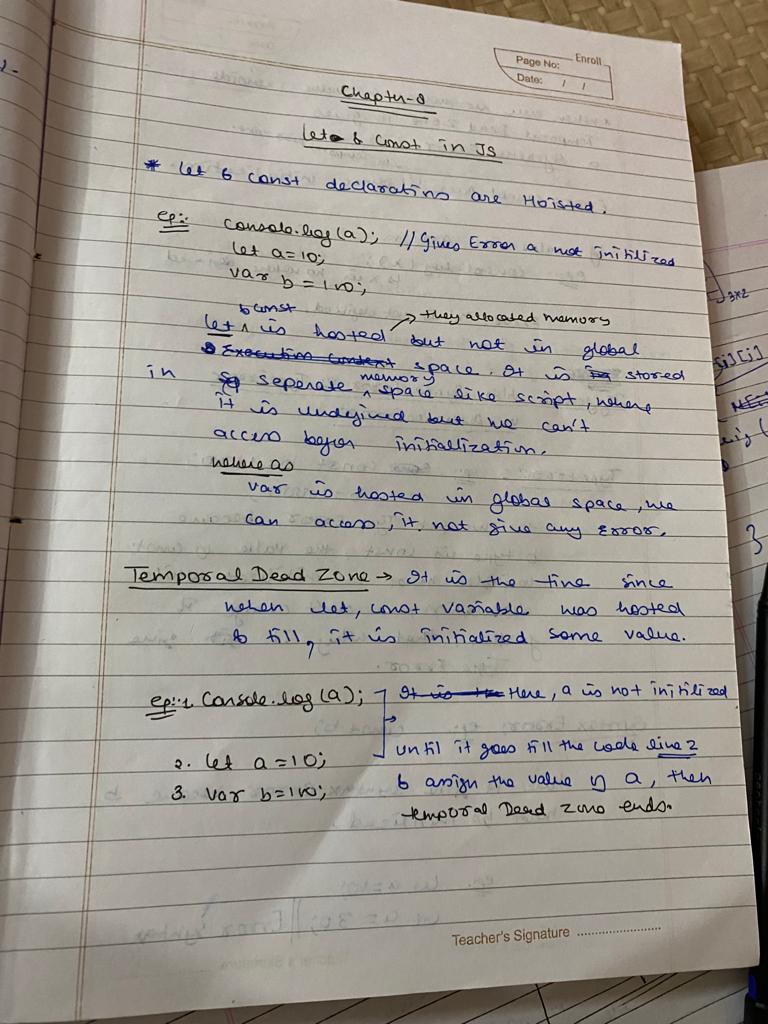 Enroll
Page No:
Date: / /
Chapter-8
let & const in JS
* let & const declarations are Hoisted.
eg:- console.log(a); // Gives Error a not initilized
let a=10;
var b=100;
& const
→ they allocated memory
let ^ is hosted but not in global
Execution context space. It is stored
in seperate ^ memory space like script, where
it is undefined but we can't
access before initiallization.
where as
var is hosted in global space, we
can access, it not give any Error.
Temporal Dead Zone → It is the time since
when let, const variable was hosted
& till, it is initialized some value.
eg:- 1. Console.log(a); It is the Here, a is not initilized
until it goes till the code line 2
2. let a=10;
& assign the value of a, then
3. var b=100;
temporal Dead zone ends.
Teacher's Signature
3x2